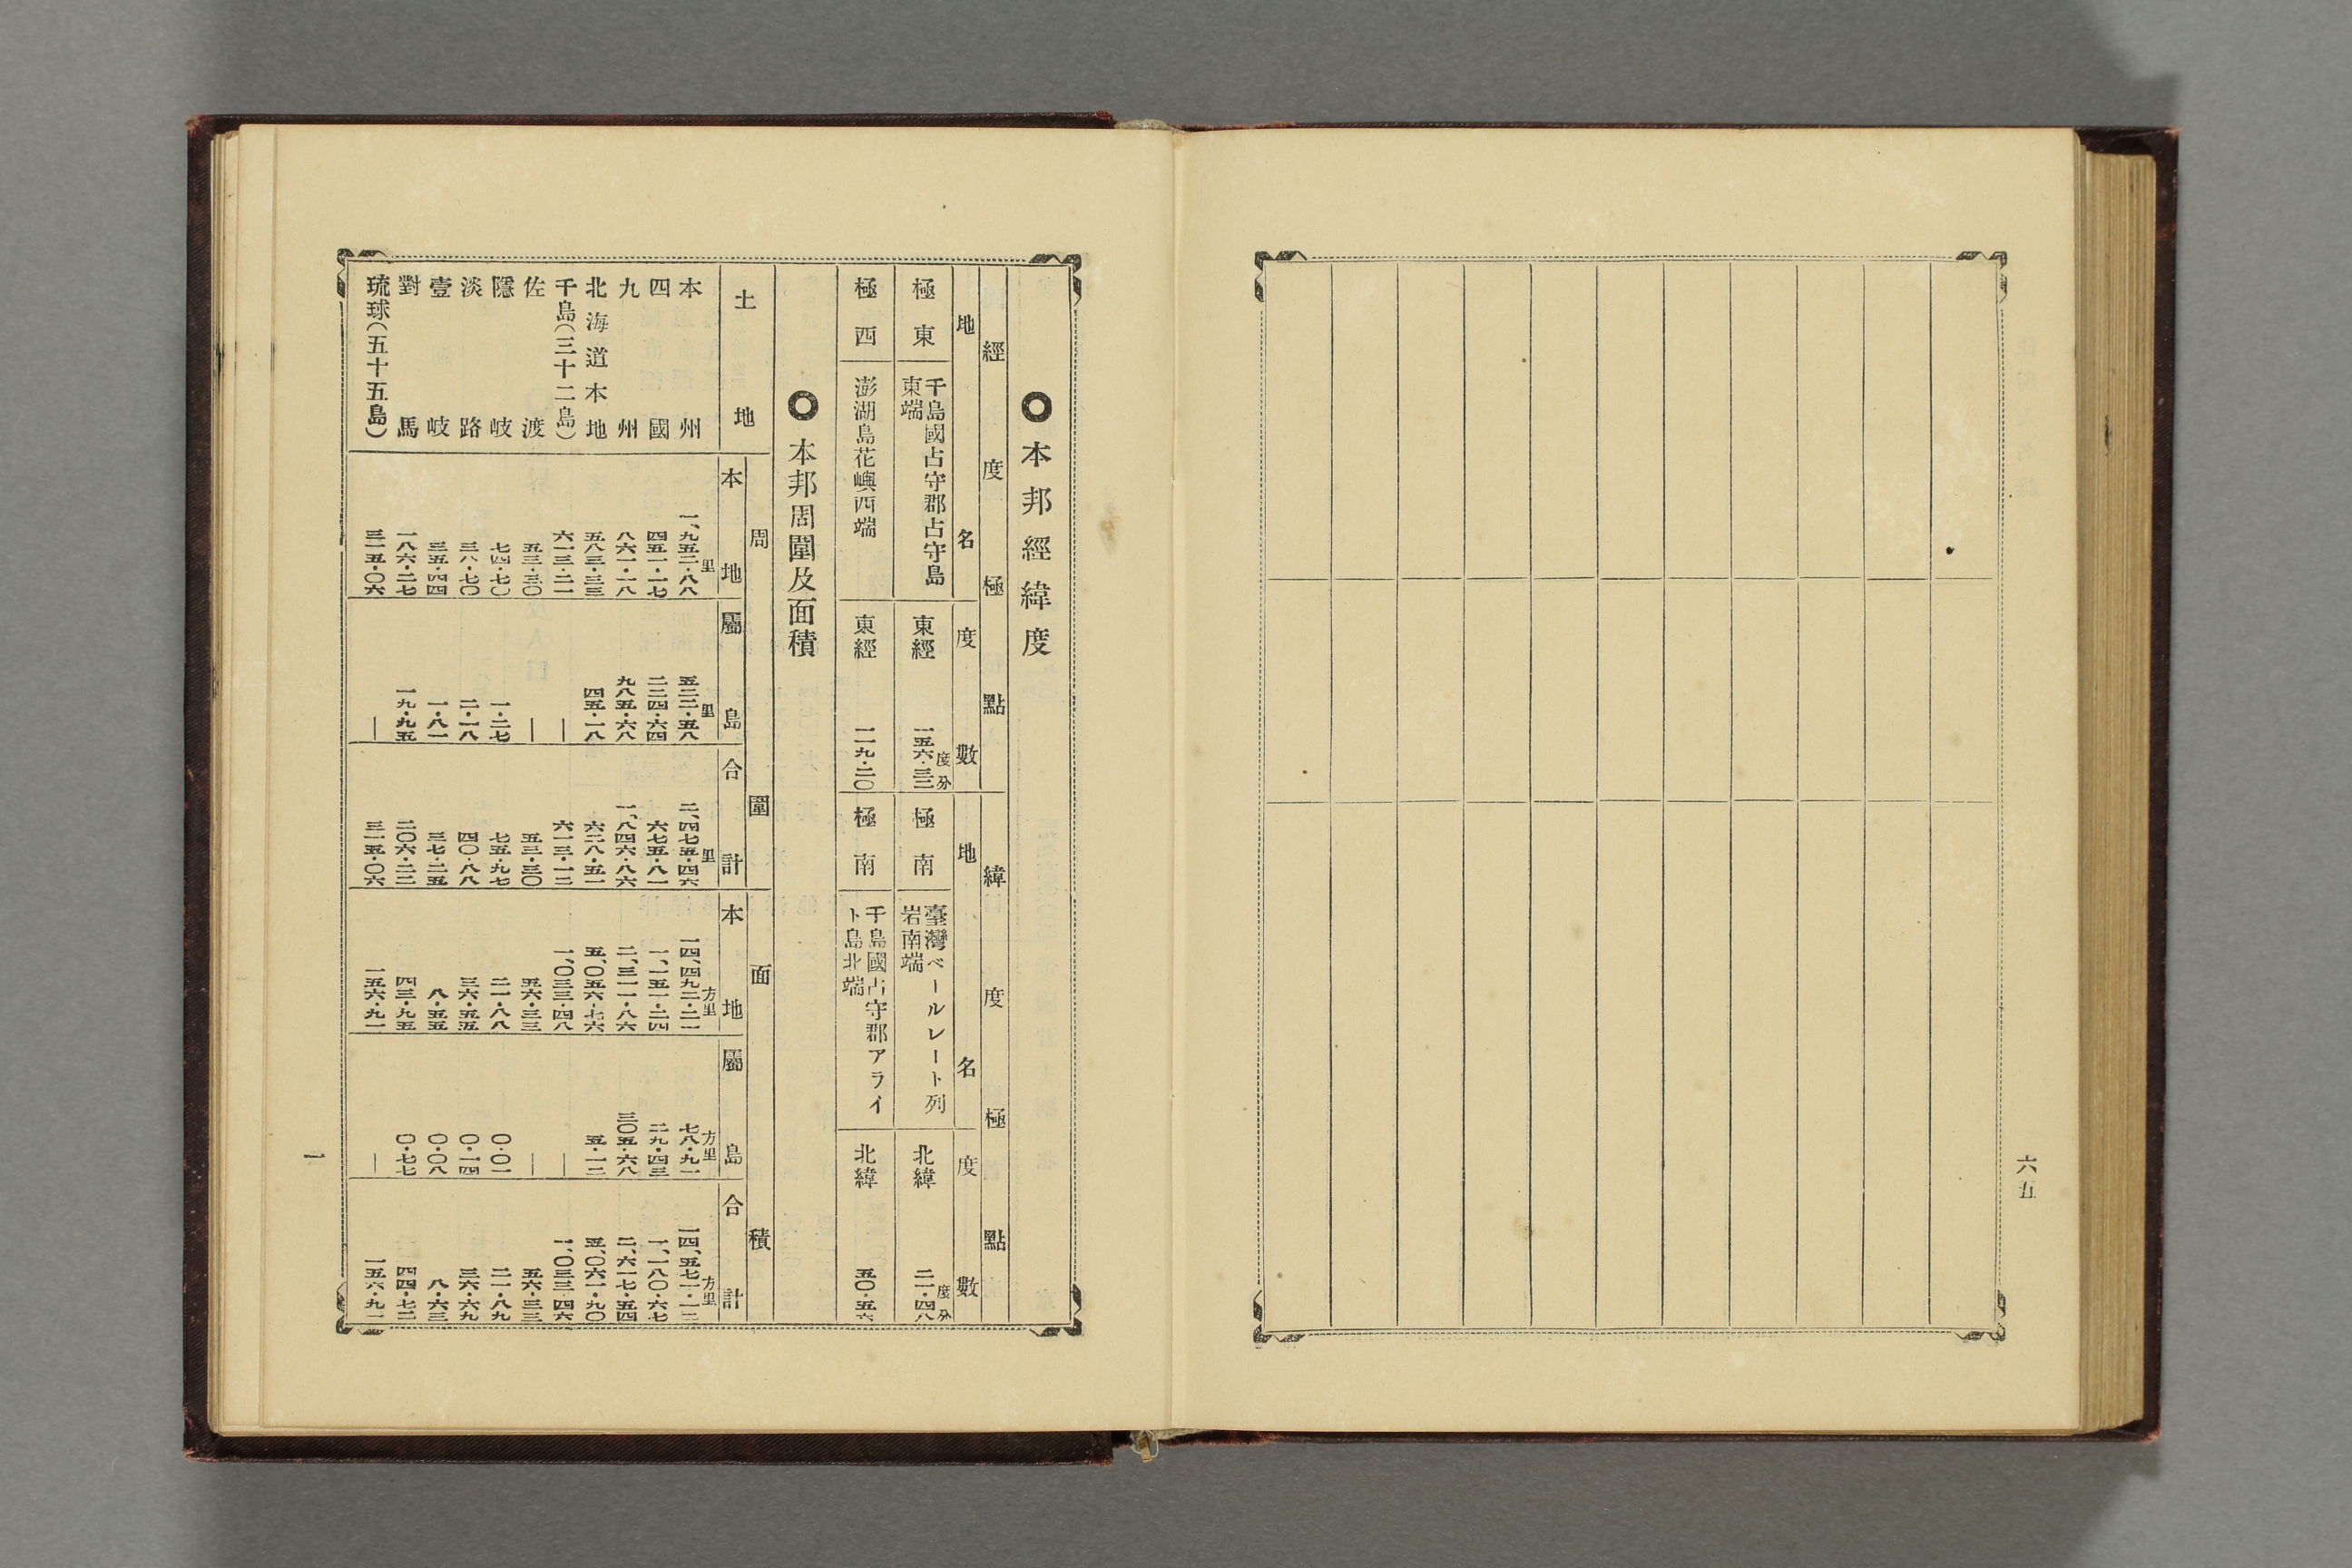 六五
◎本邦經緯度
經度極點
緯度極點
地名
度數
地名
度數
極東
千島國占守郡占守島
東端
東經
度分
一五六・三二
極南
臺灣ベールレート列
岩南端
北緯
度分
二一・四八
極西
澎湖島花嶼西端
東經
一一九・二〇
極南
千島國占守郡アライ
ト島北端
北緯
五〇・五六
◎本邦周圍及面積
土地
周圍
面積
本地
屬島
合計
本地
屬島
合計
里
里
里
方里
方里
方里
本州
一、九五二・八八
五二二・五八
二、四七五・四六
一四、四九二・二一
七八・九一
一四、五七一・一二
四國
四五一・一七
二二四・六四
六七五・八一
一、一五一・二四
二九・四三
一、一八〇・六七
九州
八六一・一八
九八五・六八
一、八四六・八六
二、三一一・八六
三〇五・六八
二、六一七・五四
北海道本地
五八三・三三
四五・一八
六二八・五一
五、〇五六・七六
五・一二
五、〇六一・九〇
千島(三十二島)
六一三・二一
―
六一三・一二
一、〇三三・四八
―
一、〇三三・四六
佐渡
五三・三〇
―
五三・三〇
五六・三三
―
五六・三三
隱岐
七四・七〇
一・二七
七五・九七
二一・八八
〇・〇一
二一・八九
淡路
三八・七〇
二・一八
四〇・八八
三六・五五
〇・一四
三六・六九
壹岐
三五・四四
一・八一
三七・二五
八・五五
〇・〇八
八・六三
對馬
一八六・二七
一九・九五
二〇六・二二
四三・九五
〇・七七
四四・七二
琉球(五十五島)
三一五・〇六
―
三一五・〇六
一五六・九一
―
一五六・九一
一